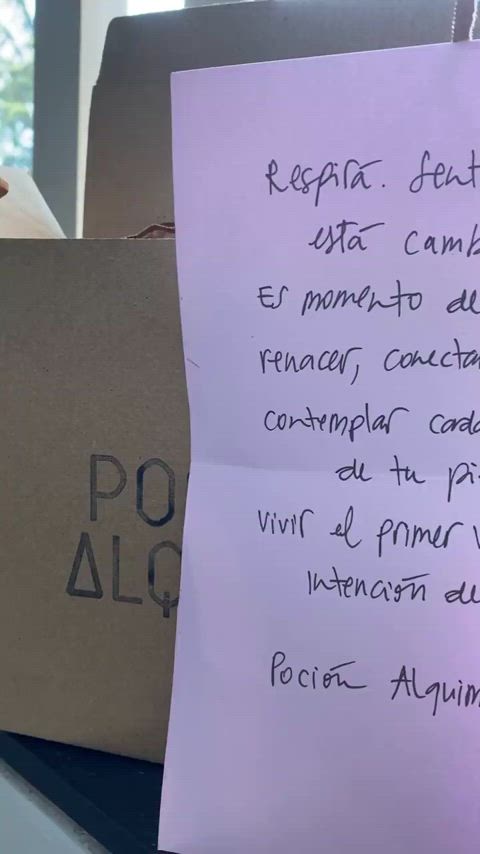 Respirá. Sent
está camb
Es momento de
renacer, conecta
contemplar cada
de tu pi
vivir el primer v
Intención de
Poción Alquim
PO
ALQ